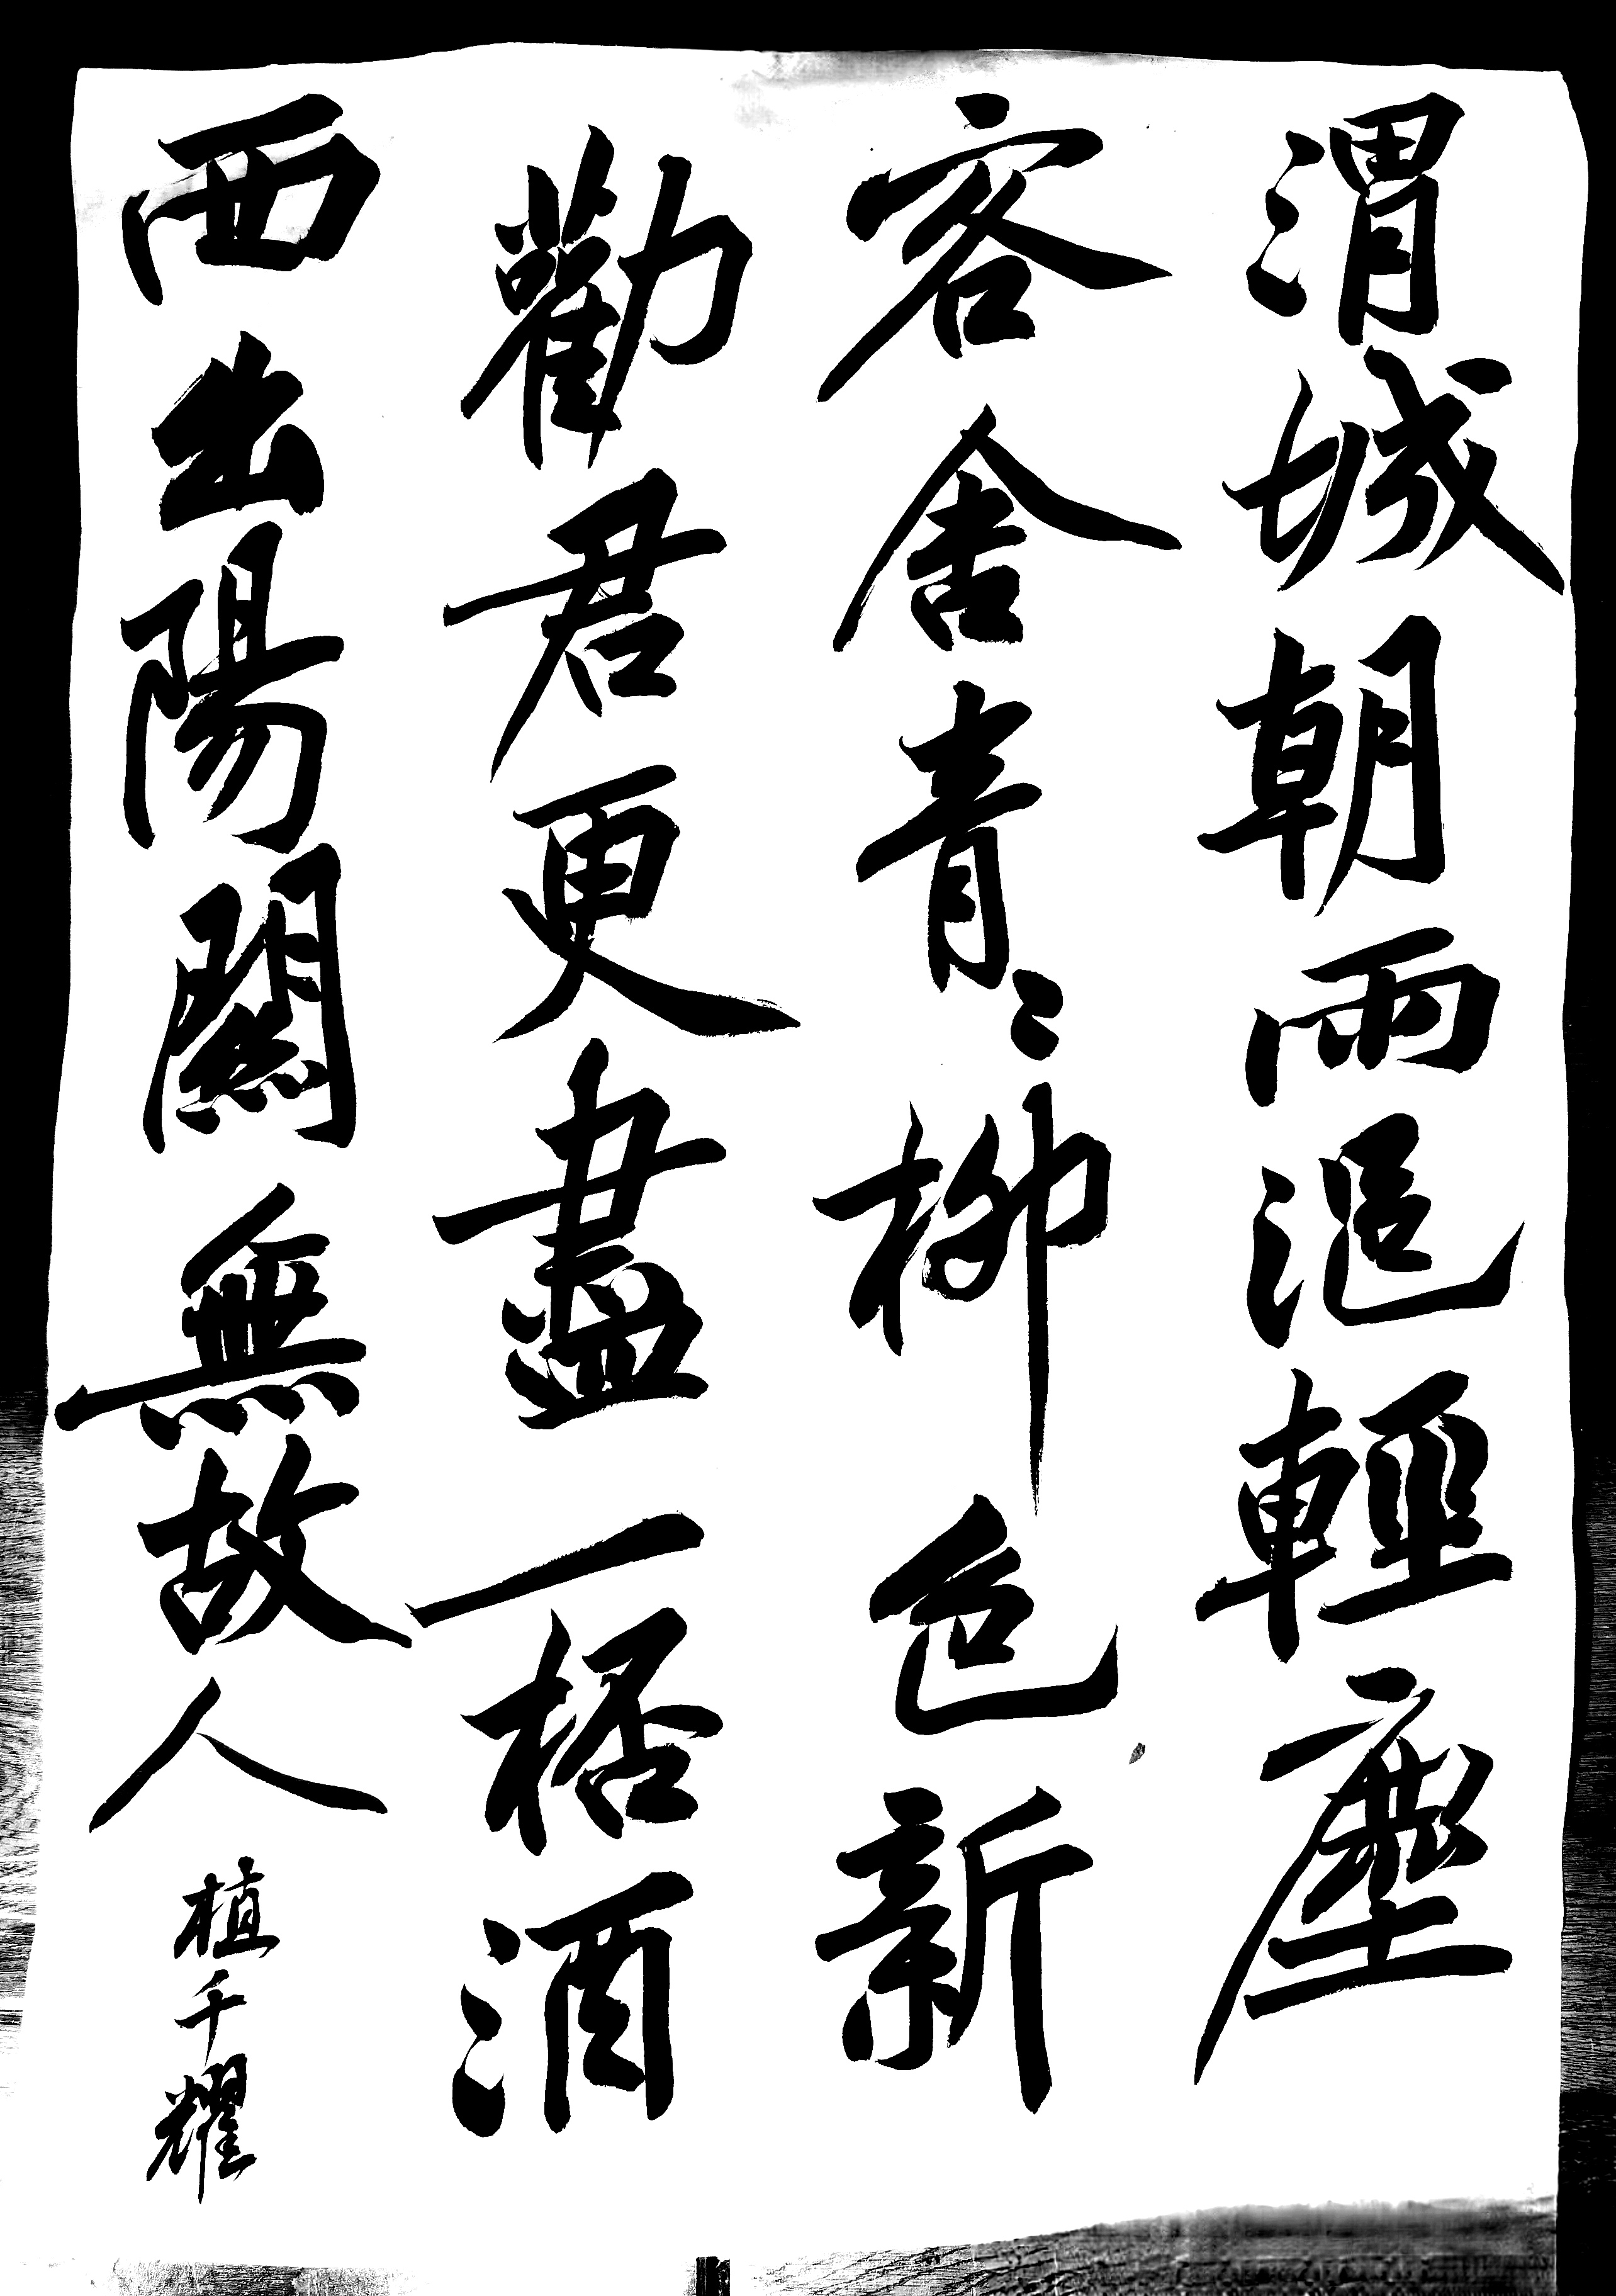 渭城朝雨浥輕塵
客舍青〻柳色新
勸君更盡一桮酒
西出陽關無故人
植千耀